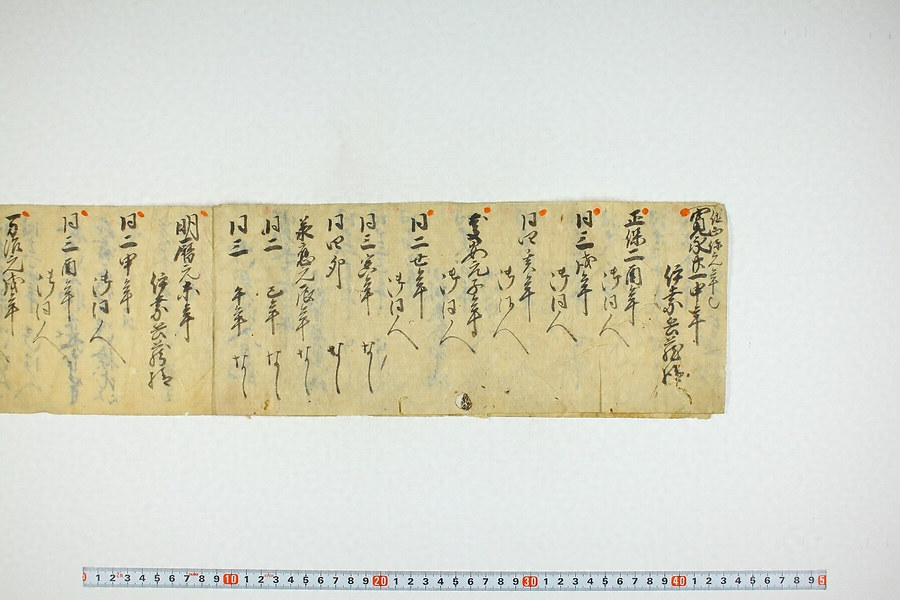 寛永廿一申年
伊奈兵蔵様
正保二酉年
御同人
同三戌年
御同人
同四亥年
御同人
慶安元子年
御同人
同二丑年
御同人
同三寅年 なし
同四卯 なし
承應元辰年 なし
同二 巳年 なし
同三 午年 なし
明暦元未年
伊奈兵蔵様
同二申年
御同人
同三酉年
御同人
万治元戌年
0 1 2 3 4 5 6 7 8 9 10 1 2 3 4 5 6 7 8 9 20 1 2 3 4 5 6 7 8 9 30 1 2 3 4 5 6 7 8 9 40 1 2 3 4 5 6 7 8 9 5